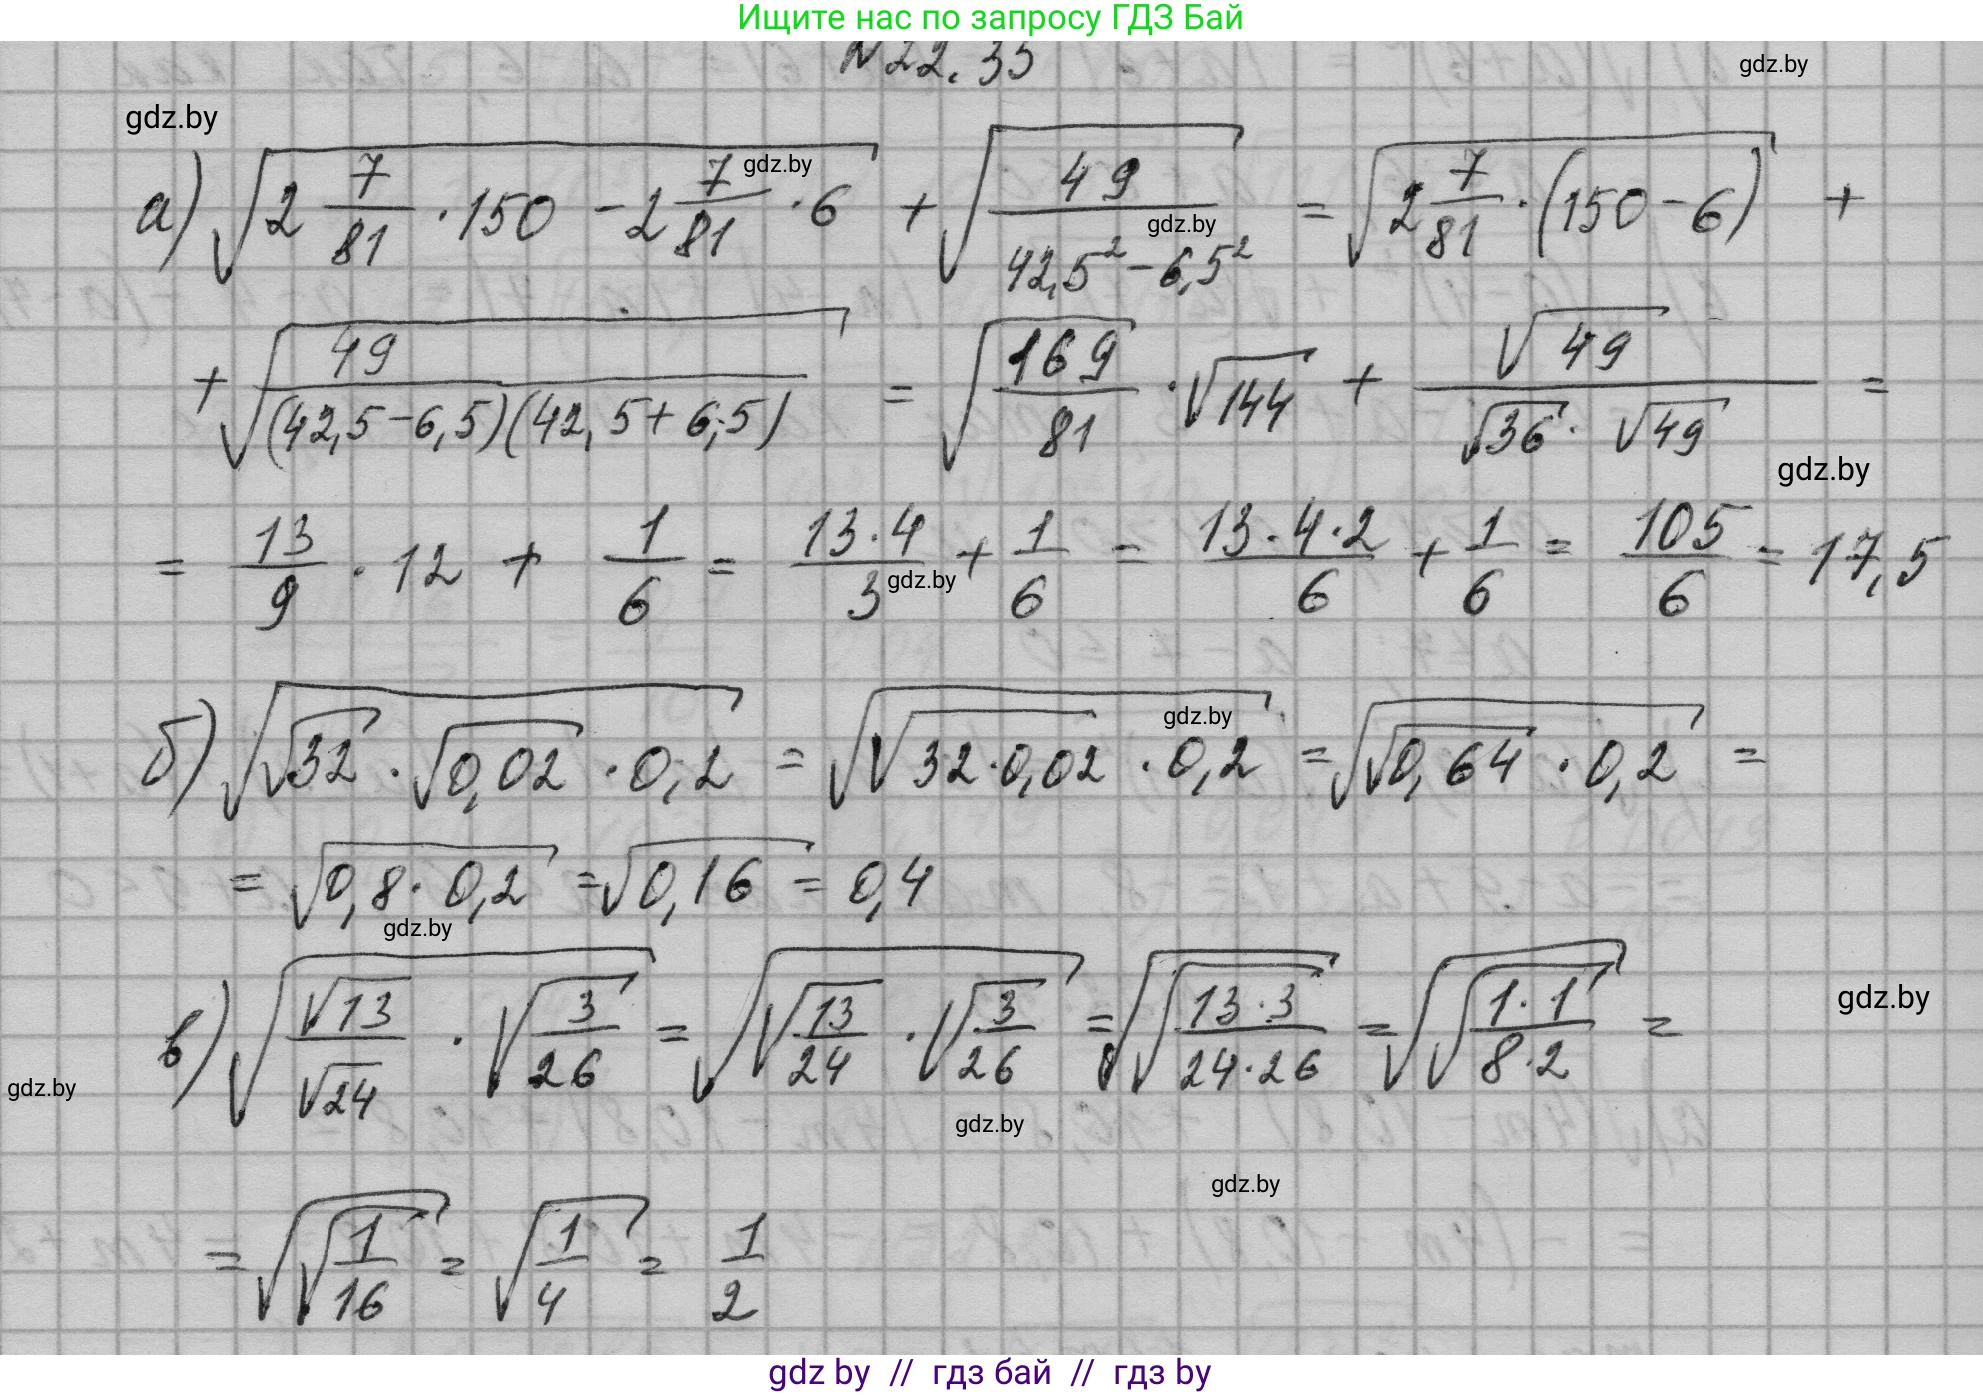 Ищите нас по запросу ГДЗ Бай
№22.35
gdz.by
gdz.by
а) √(2 7/81 · 150 - 2 7/81 · 6) + √(49/(42,5² - 6,5²)) = √(2 7/81 · (150 - 6)) +
gdz.by
gdz.by
+ √(49/((42,5 - 6,5)(42,5 + 6,5))) = √(169/81) · √144 + √49/(√36 · √49) =
gdz.by
= 13/9 · 12 + 1/6 = 13·4/3 + 1/6 = 13·4·2/6 + 1/6 = 105/6 = 17,5
gdz.by
б) √(√32 · √0,02 · 0,2) = √(√(32·0,02) · 0,2) = √(√0,64 · 0,2) =
gdz.by
= √(0,8 · 0,2) = √0,16 = 0,4
gdz.by
в) √(√13/√24 · √(3/26)) = √(√(13/24) · √(3/26)) = √√(13·3/(24·26)) = √√(1·1/(8·2)) =
gdz.by
gdz.by
gdz.by
gdz.by
= √√(1/16) = √(1/4) = 1/2
gdz by // гдз бай // гдз by